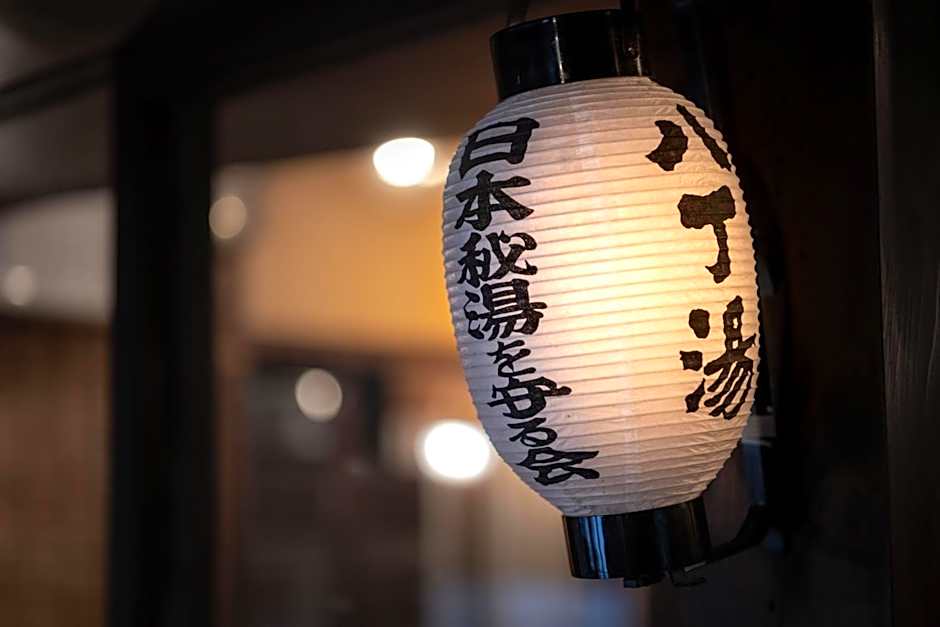 八丁湯
日本秘湯を守る会